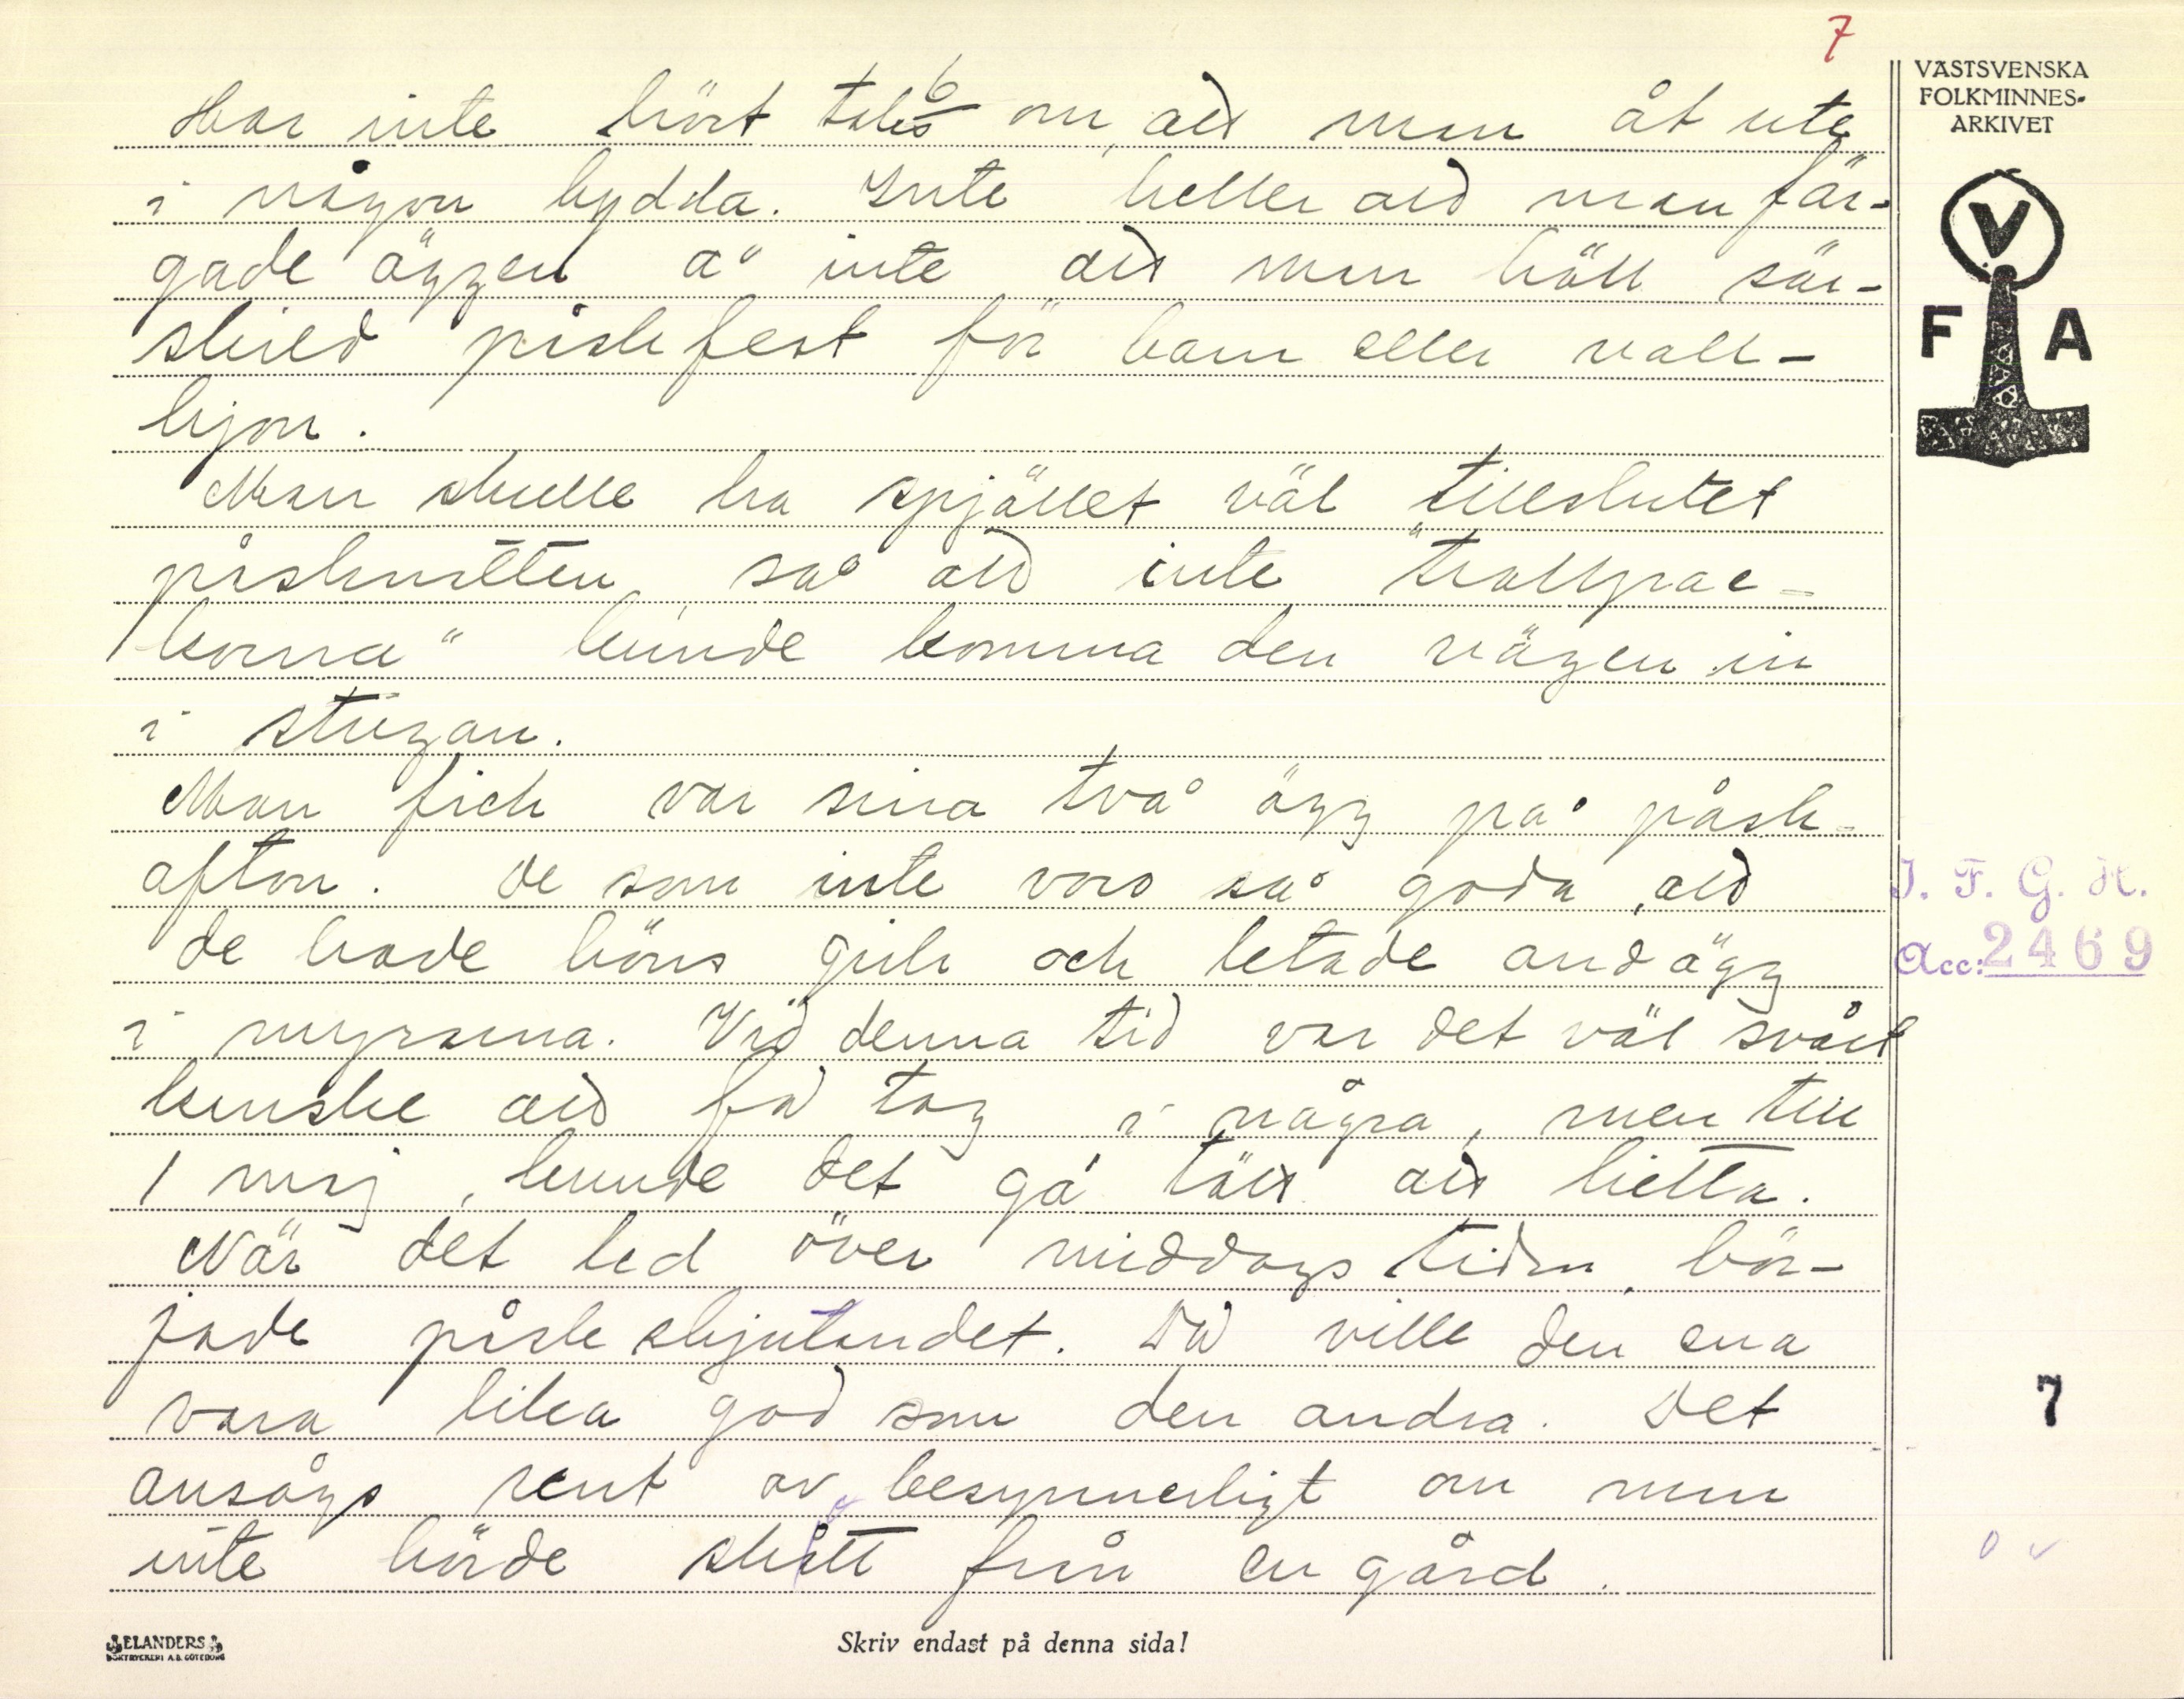 7
6
Har inte hört talas om, att man åt ute
i någon hydda. Inte heller att man fär-
gade äggen å inte att man höll sär-
skild påskfest för barn eller vall-
hjon.
Man skulle ha spjället väl tillslutet
påsknatten, så att inte "trollpac-
korna" kunde komma den vägen in
i stugan.
Man fick var sina två ägg på påsk-
afton. De som inte voro så goda, att
de hade höns gick och letade andägg
i myrarna. Vid denna tid var det väl svårt
kanske att få tag i några, men till
1 maj, kunde det gå lätt att hitta.
När det led över middags tiden, bör-
jade påskskjutandet. Då ville den ena
vara lika god som den andra. Det
ansågs rent av besynnerligt om man
inte hörde skott från en gård.
VÄSTSVENSKA
FOLKMINNES-
ARKIVET
V
F A
I. F. G. H.
Acc: 2469
7
ELANDERS
BOKTRYCKERI A.B. GÖTEBORG
Skriv endast på denna sida!